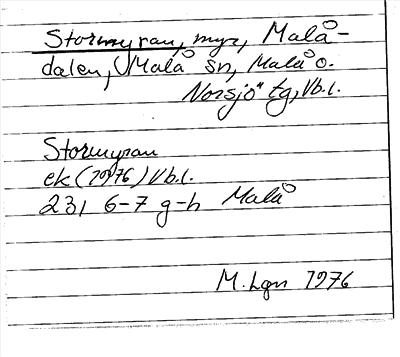 Stormyran, myr, Malå-
dalen, Malå sn, Malå o.
Norsjö tg, Vb.l.
Stormyran
ek (1976) Vb.l.
23I 6-7 g-h Malå
M. Lgn 1976